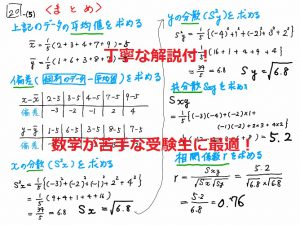 20-(5) <まとめ>
上記のデータの平均値を求める
x̄ = 1/5(2+3+4+7+9) = 5
ȳ = 1/5(1+6+3+8+7) = 5
偏差(個別のデータ-平均値)を求める
x-x̄ 2-5 3-5 4-5 7-5 9-5
偏差 -3 -2 -1 2 4
y-ȳ 1-5 6-5 3-5 8-5 7-5
偏差
xの分散(S²x)を求める
S²x = 1/5{(-3)²+(-2)²+(-1)²+2²+4²}
= 1/5(9+4+1+4+16)
= 6.8 Sx = √6.8
yの分散(S²y)を求める
S²y = 1/5{(-4)²+1²+(-2)²+3²+2²}
(16+1+4+9+4)
= 6.8 Sy = √6.8
共分散Sxyを求める
Sxy
= 1/5{(-3)(-4)+(-2)×1+
(-1)(-2)+2×3+4×2}
= 5.2
相関係数rを求める
r = Sxy/√Sx√Sy = 5.2/√6.8×√6.8
= 5.2/6.8 ≒ 0.76
丁寧な解説付！
数学が苦手な受験生に最適！